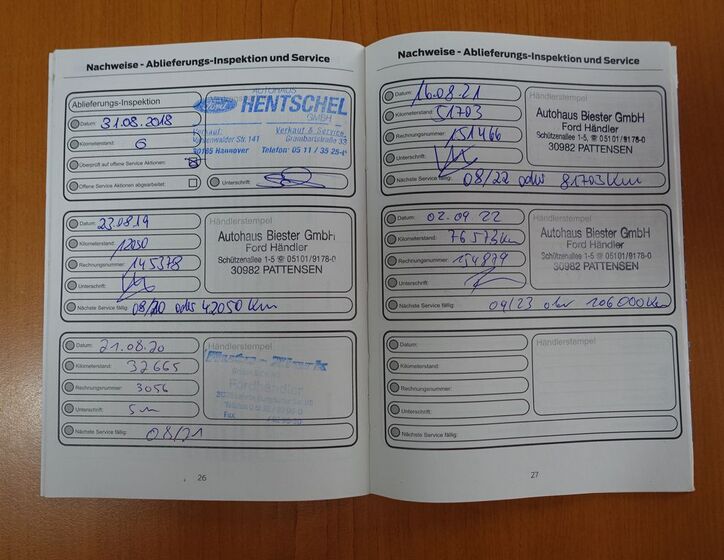 Nachweise - Ablieferungs-Inspektion und Service
Ablieferungs-Inspektion
Datum: 31.08.2018
Kilometerstand: 6
Überprüft auf offene Service Aktionen:
Offene Service Aktionen abgearbeitet:
AUTOHAUS
Ford HENTSCHEL
GMBH
Verkauf: Verkauf & Service
Str. 141
30165 Hannover Telefon: 05 11 / 35 25-
Unterschrift:
Datum: 23.08.19
Kilometerstand: 12050
Rechnungsnummer: 145378
Unterschrift:
Nächste Service fällig: 08/20 oder 42050 Km
Händlerstempel
Autohaus Biester GmbH
Ford Händler
Schützenallee 1-5 ☎ 05101/9178-0
30982 PATTENSEN
Datum: 21.08.20
Kilometerstand: 32665
Rechnungsnummer: 3056
Unterschrift:
Nächste Service fällig: 08/21
Händlerstempel
Fordhändler
Fax
26
Nachweise - Ablieferungs-Inspektion und Service
Datum: 16.08.21
Kilometerstand: 51703
Rechnungsnummer: 151466
Unterschrift:
Nächste Service fällig: 08/22 oder 81703 Km
Händlerstempel
Autohaus Biester GmbH
Ford Händler
Schützenallee 1-5 ☎ 05101/9178-0
30982 PATTENSEN
Datum: 02.09.22
Kilometerstand: 76573 Km
Rechnungsnummer: 154879
Unterschrift:
Nächste Service fällig: 09/23 oder 106000 Km
Händlerstempel
Autohaus Biester GmbH
Ford Händler
Schützenallee 1-5 ☎ 05101/9178-0
30982 PATTENSEN
Datum:
Kilometerstand:
Rechnungsnummer:
Unterschrift:
Nächste Service fällig:
Händlerstempel
27